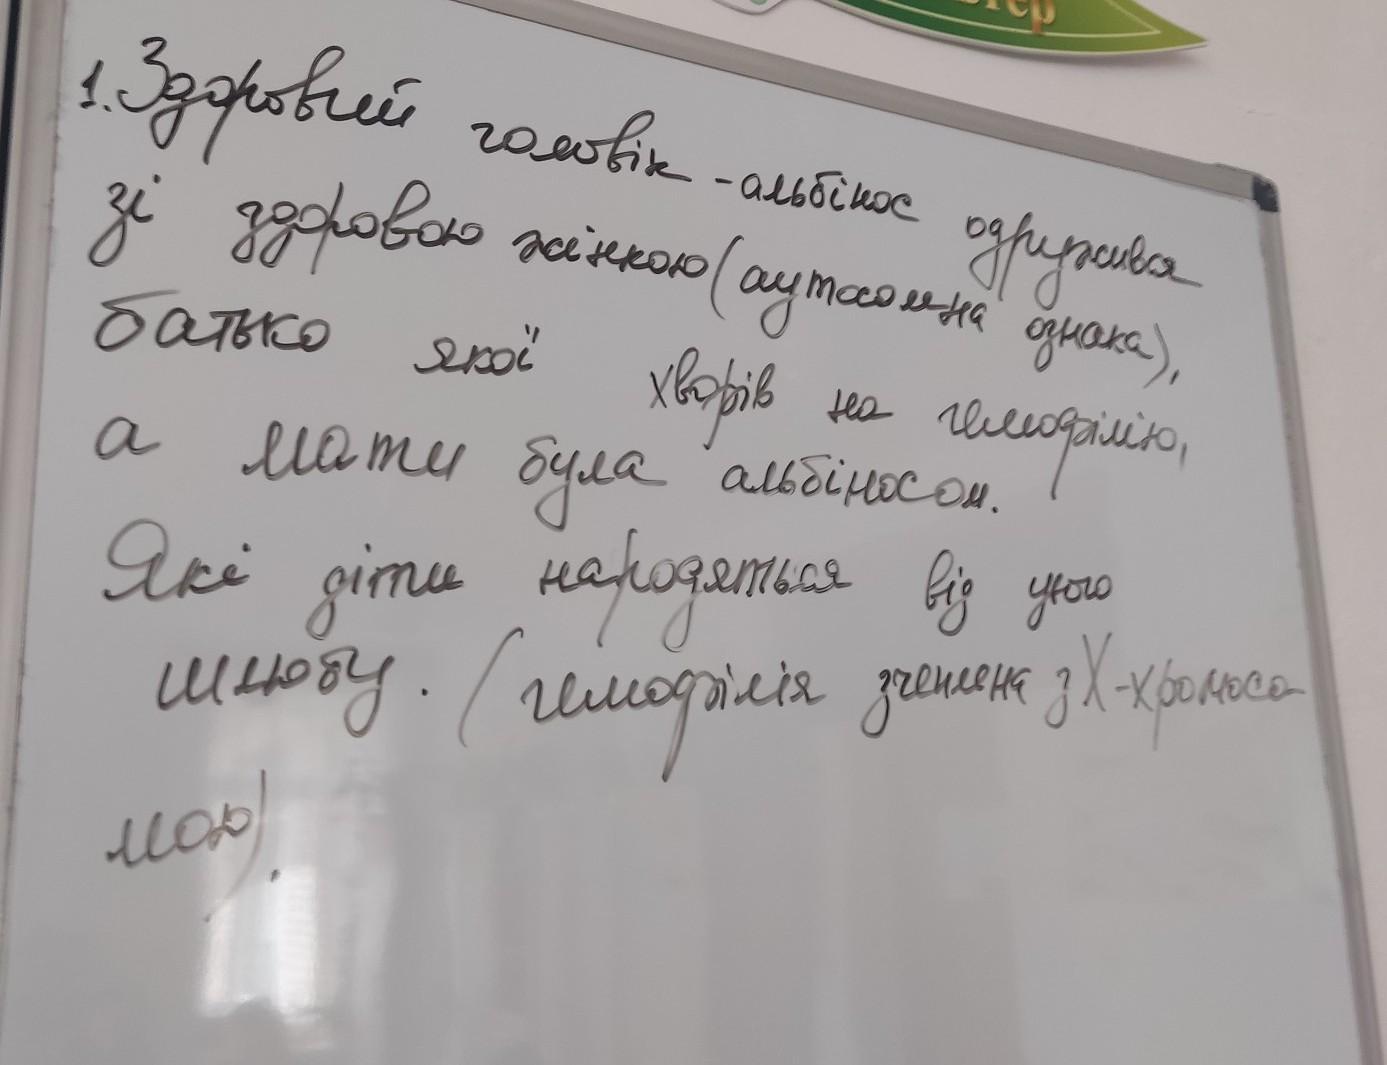 1. Здоровий чоловік - альбінос одружився
зі здоровою жінкою (аутосомна ознака),
батько якої хворів на гемофілію,
а мати була альбіносом.
Які діти народяться від цього
шлюбу. (гемофілія зчеплена з X-хромосо
мою).